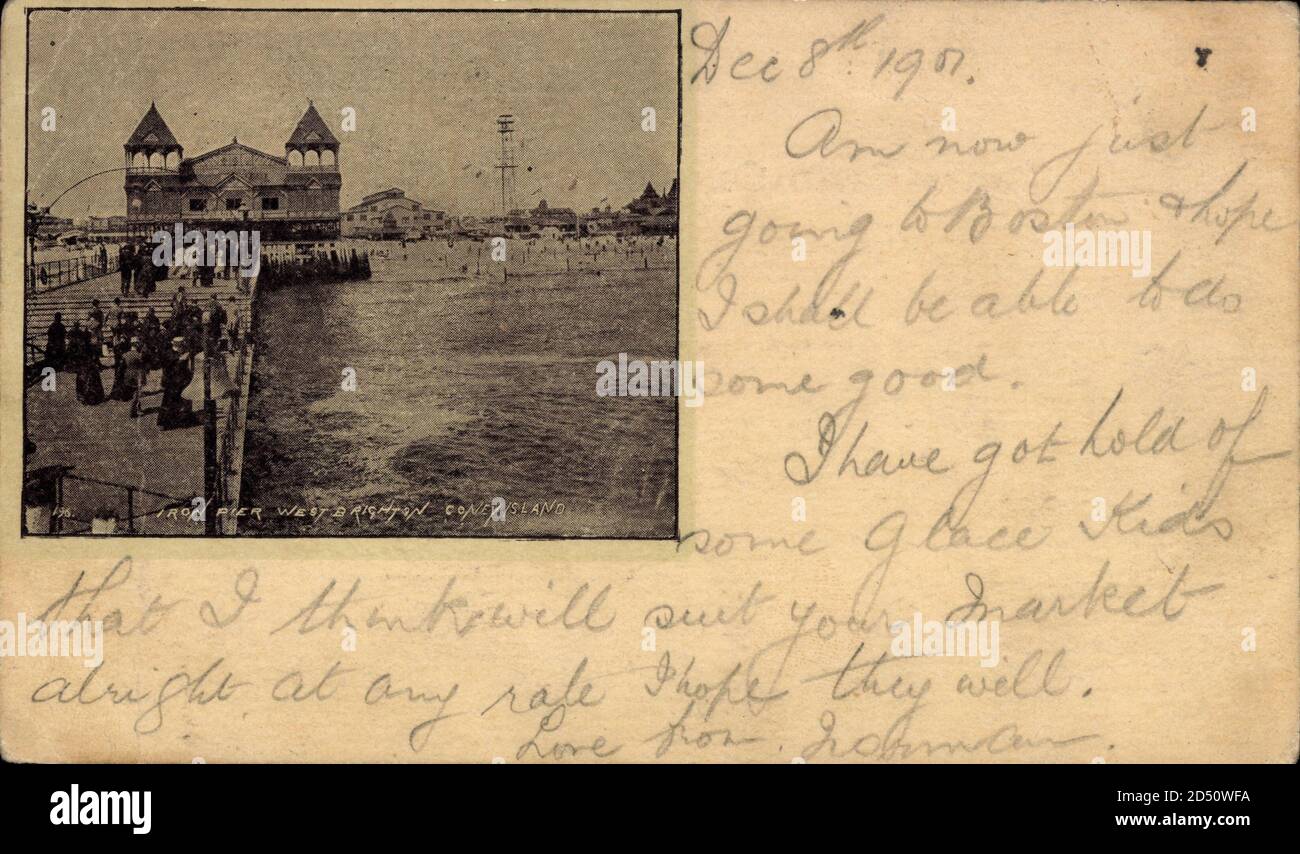 Dec 8th 1901.
Am now just
going to Boston & hope
I shall be able to do
some good.
I have got hold of
some Glace Kids
that I think will suit your market
alright at any rate I hope they will.
Love from Norman.
176. IRON PIER WEST BRIGHTON CONEY ISLAND
alamy
Image ID: 2D50WFA
www.alamy.com